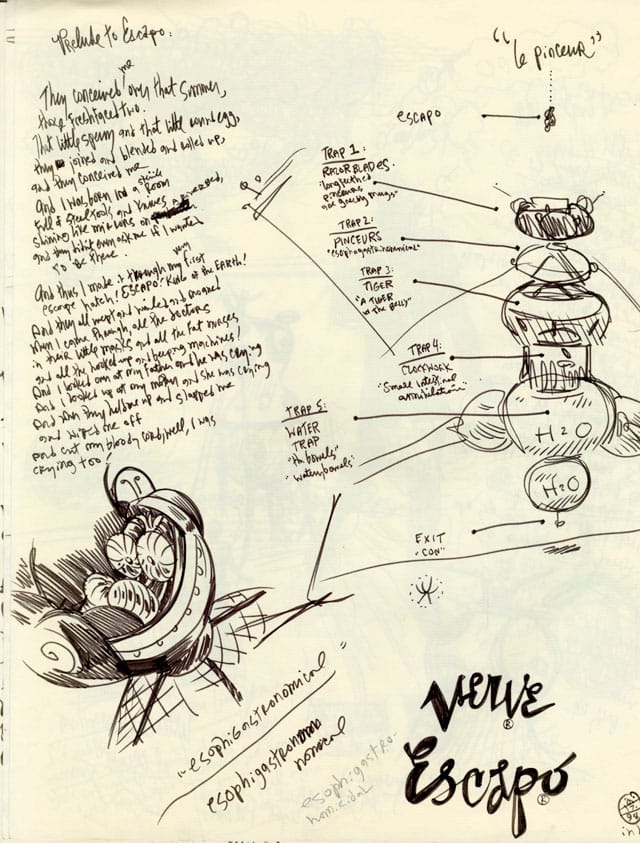 Prelude to Escapo:
They conceived me over that summer,
those freshfaced two.
That little sperm and that little round egg,
they joined and blended and balled up,
and they conceived me
And I was born in a sterile room
full of steel tools and knives
shining like mirrors on
and they didn't even ask me if I wanted
to be there.
And thus I made it through my very first
escape hatch! ESCAPO: King of the EARTH!
And they all wept and wailed and moaned
When I came through, all the doctors
in their little masks and all the fat nurses
and all the hooked up and beeping machines!
And I looked over at my father and he was crying
And I looked up at my mother and she was crying
And then they held me up and slapped me
and wiped me off
and cut my bloody cord, well, I was
crying too!
"Le Pinceur"
ESCAPO
TRAP 1:
RAZORBLADES.
"longtoothed
pinceurs
gnashing mugs"
TRAP 2:
PINCEURS
"esophigastrinomical"
TRAP 3:
TIGER
"A TIGER
in the Belly"
TRAP 4:
CLOCKWORK
"Small intestinal
annihilation"
TRAP 5:
WATER
TRAP
"the bowels"
"watery bowels"
H2O
H2O
EXIT
"CON"
"esophigastronomical"
esophigastronomo
nomical
esophigastro-
homicidal
VERVE
®
Escapo
®